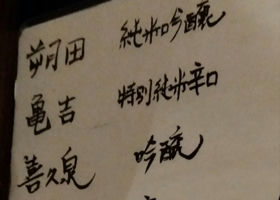 朔田 純米吟醸
亀吉 特別純米辛口
喜久泉 吟醸